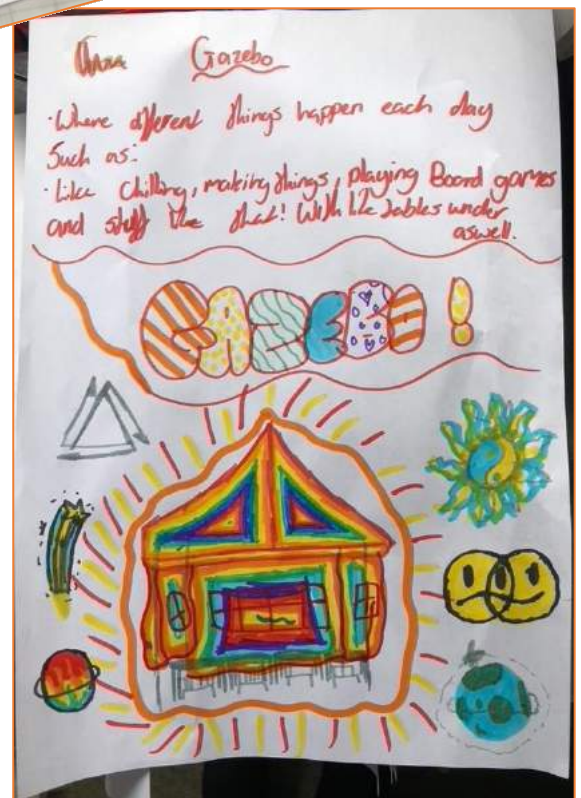 Gazebo
·Where different things happen each day
Such as:
·Like Chilling, making things, playing Board games
and stuff like that! With like tables under
aswell.
GAZEBO!